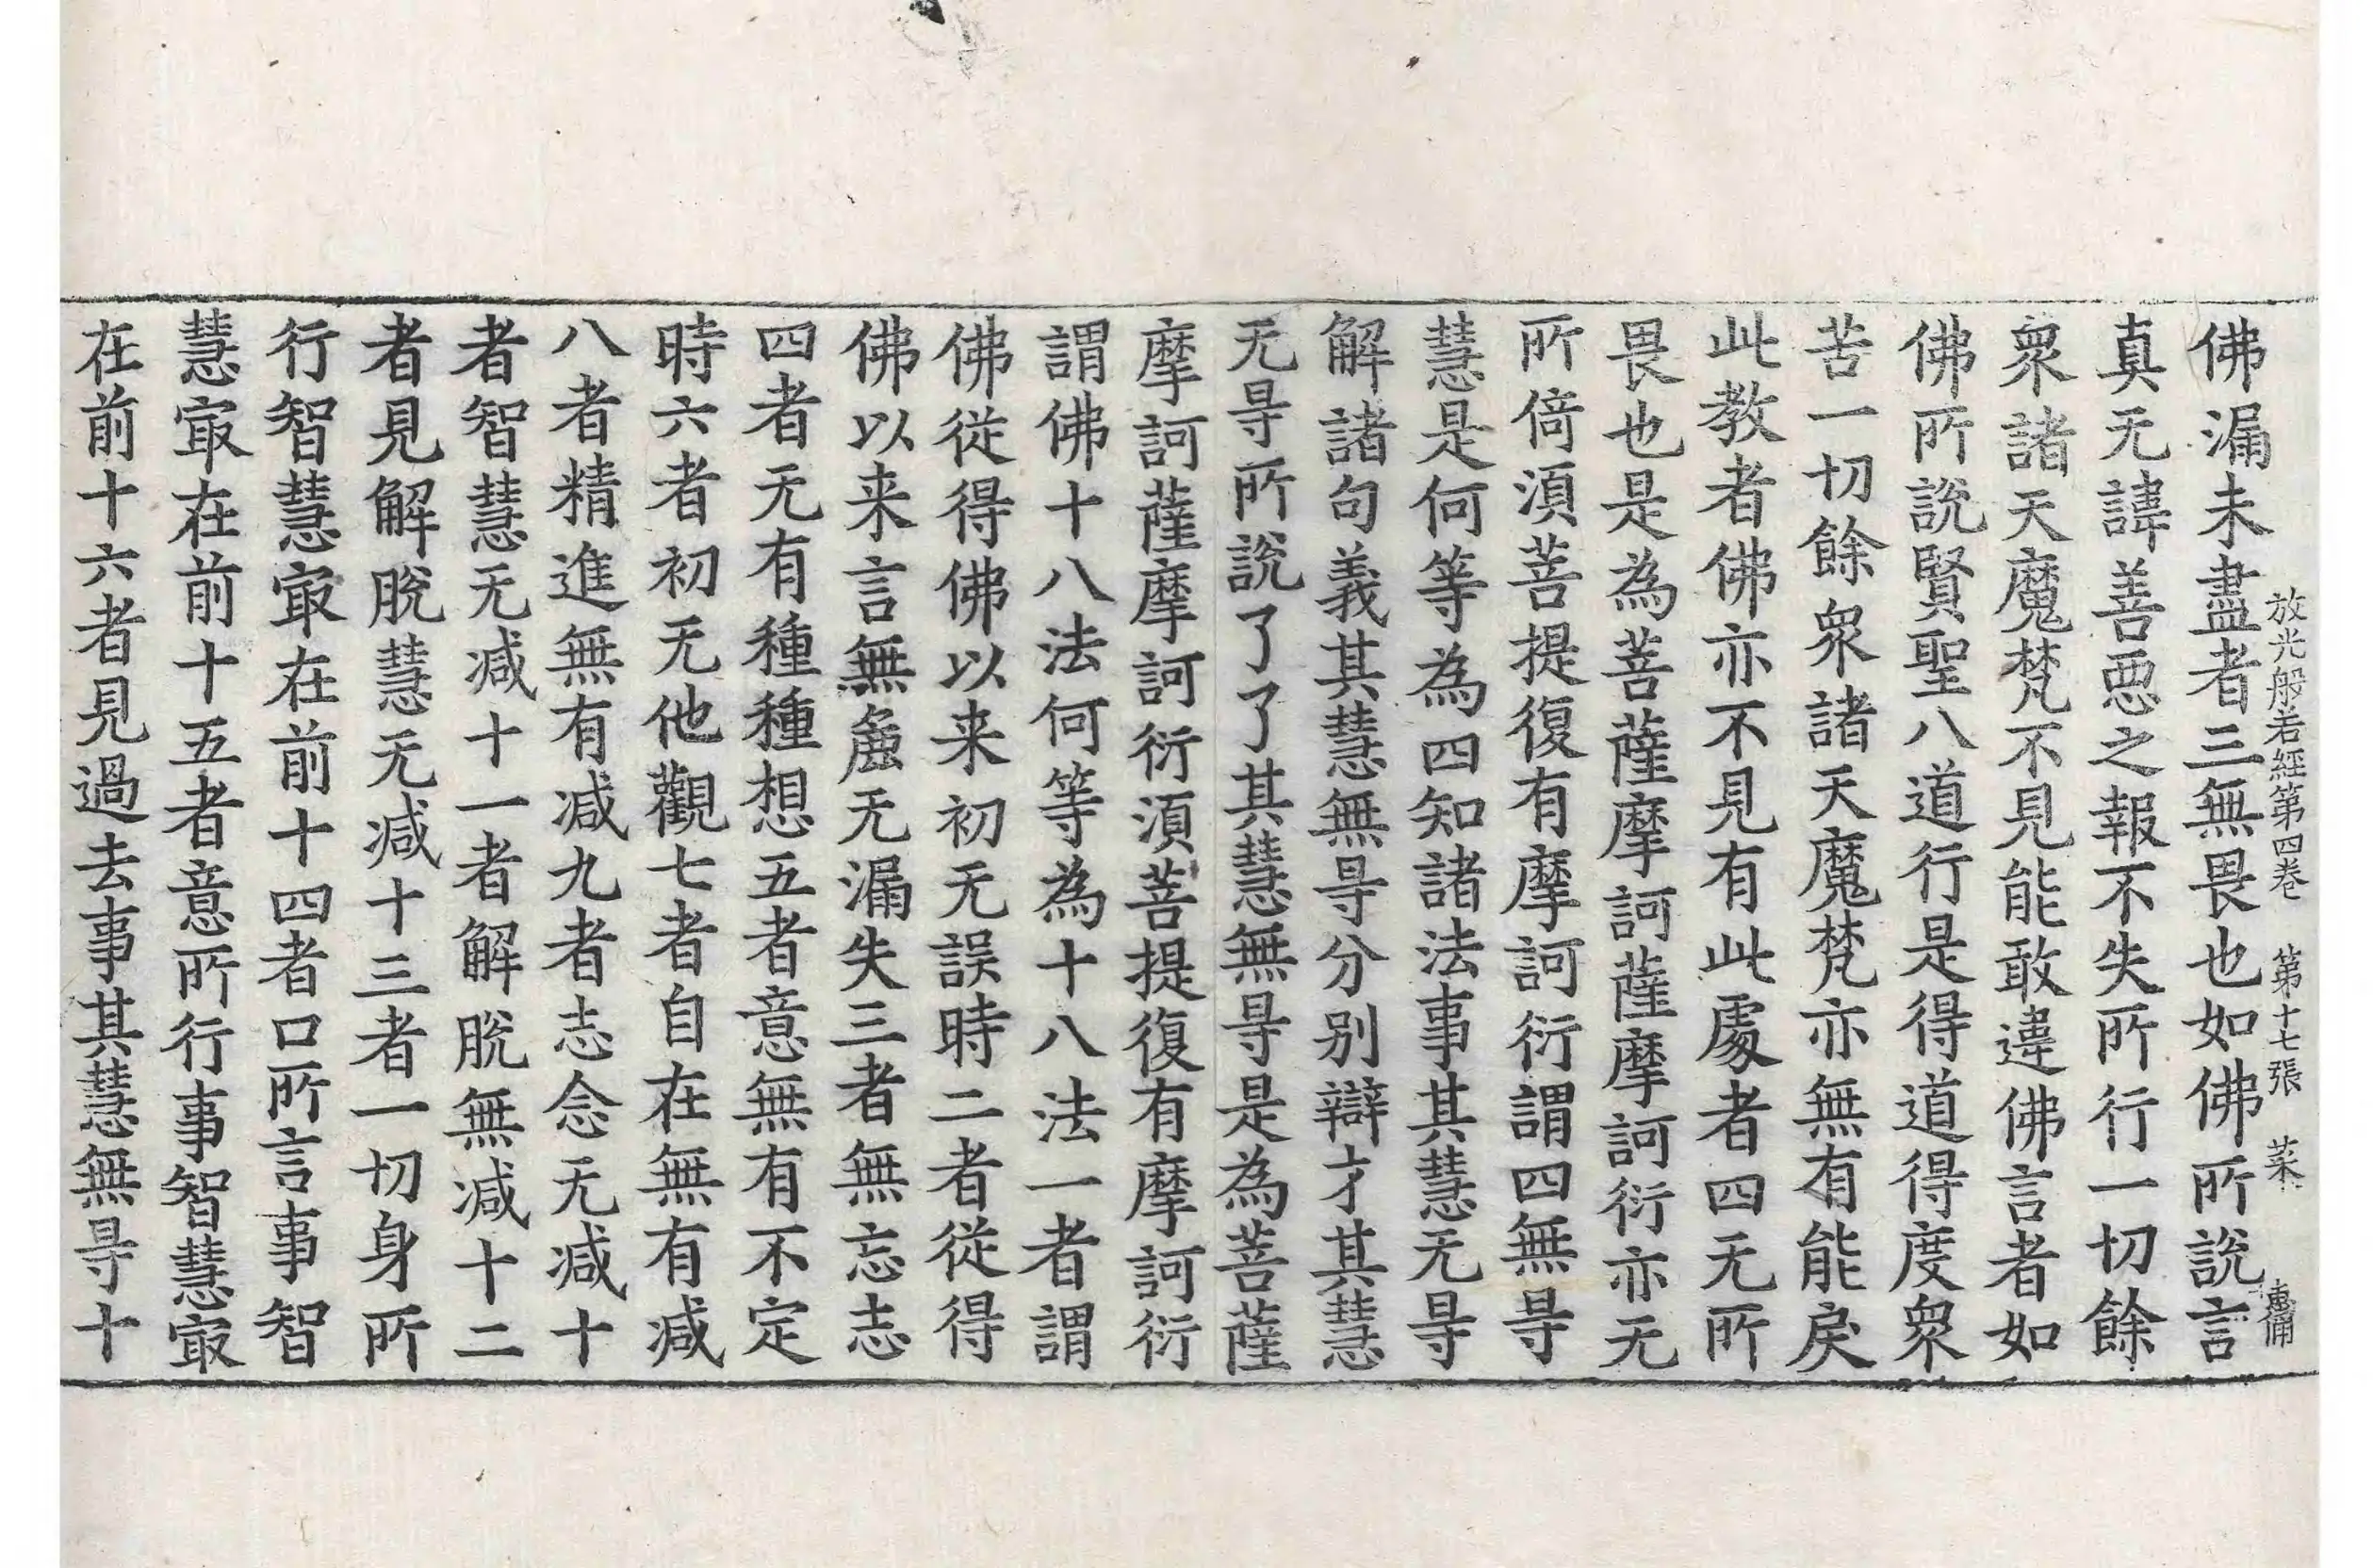 放光般若經第四卷 第十七張 菜
佛漏未盡者三無畏也如佛所說言
真无諱善惡之報不失所行一切餘
衆諸天魔梵不見能敢違佛言者如
佛所說賢聖八道行是得道得度衆
苦一切餘衆諸天魔梵亦無有能戾
此教者佛亦不見有此處者四无所
畏也是為菩薩摩訶薩摩訶衍亦无
所倚湏菩提復有摩訶衍謂四無㝵
慧是何等為四知諸法事其慧无㝵
解諸句義其慧無㝵分別辯才其慧
无㝵所說了了其慧無㝵是為菩薩
摩訶薩摩訶衍湏菩提復有摩訶衍
謂佛十八法何等為十八法一者謂
佛從得佛以来初无誤時二者從得
佛以来言無麁无漏失三者無忘志
四者无有種種想五者意無有不定
時六者初无他觀七者自在無有减
八者精進無有减九者志念无减十
者智慧无减十一者解脫無减十二
者見解脫慧无减十三者一切身所
行智慧㝡在前十四者口所言事智
慧㝡在前十五者意所行事智慧㝡
在前十六者見過去事其慧無㝵十